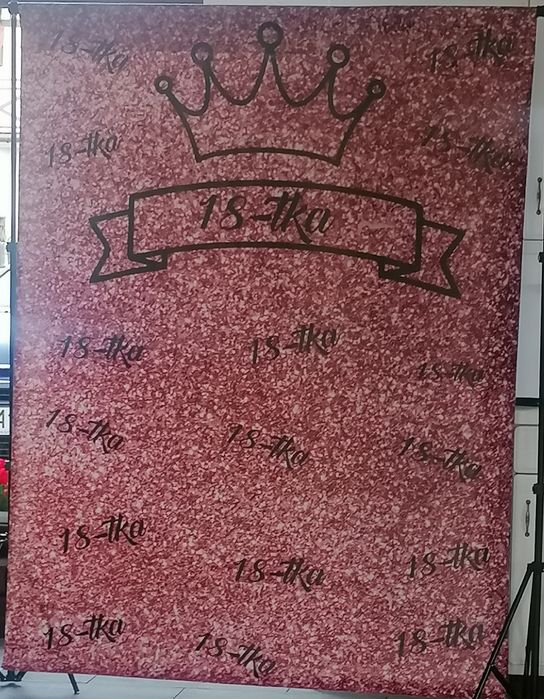 18-tka
18-tka
18-tka
18-tka
18-tka
18-tka
18-tka
18-tka
18-tka
18-tka
18-tka
18-tka
18-tka
18-tka
18-tka
18-tka
18-tka